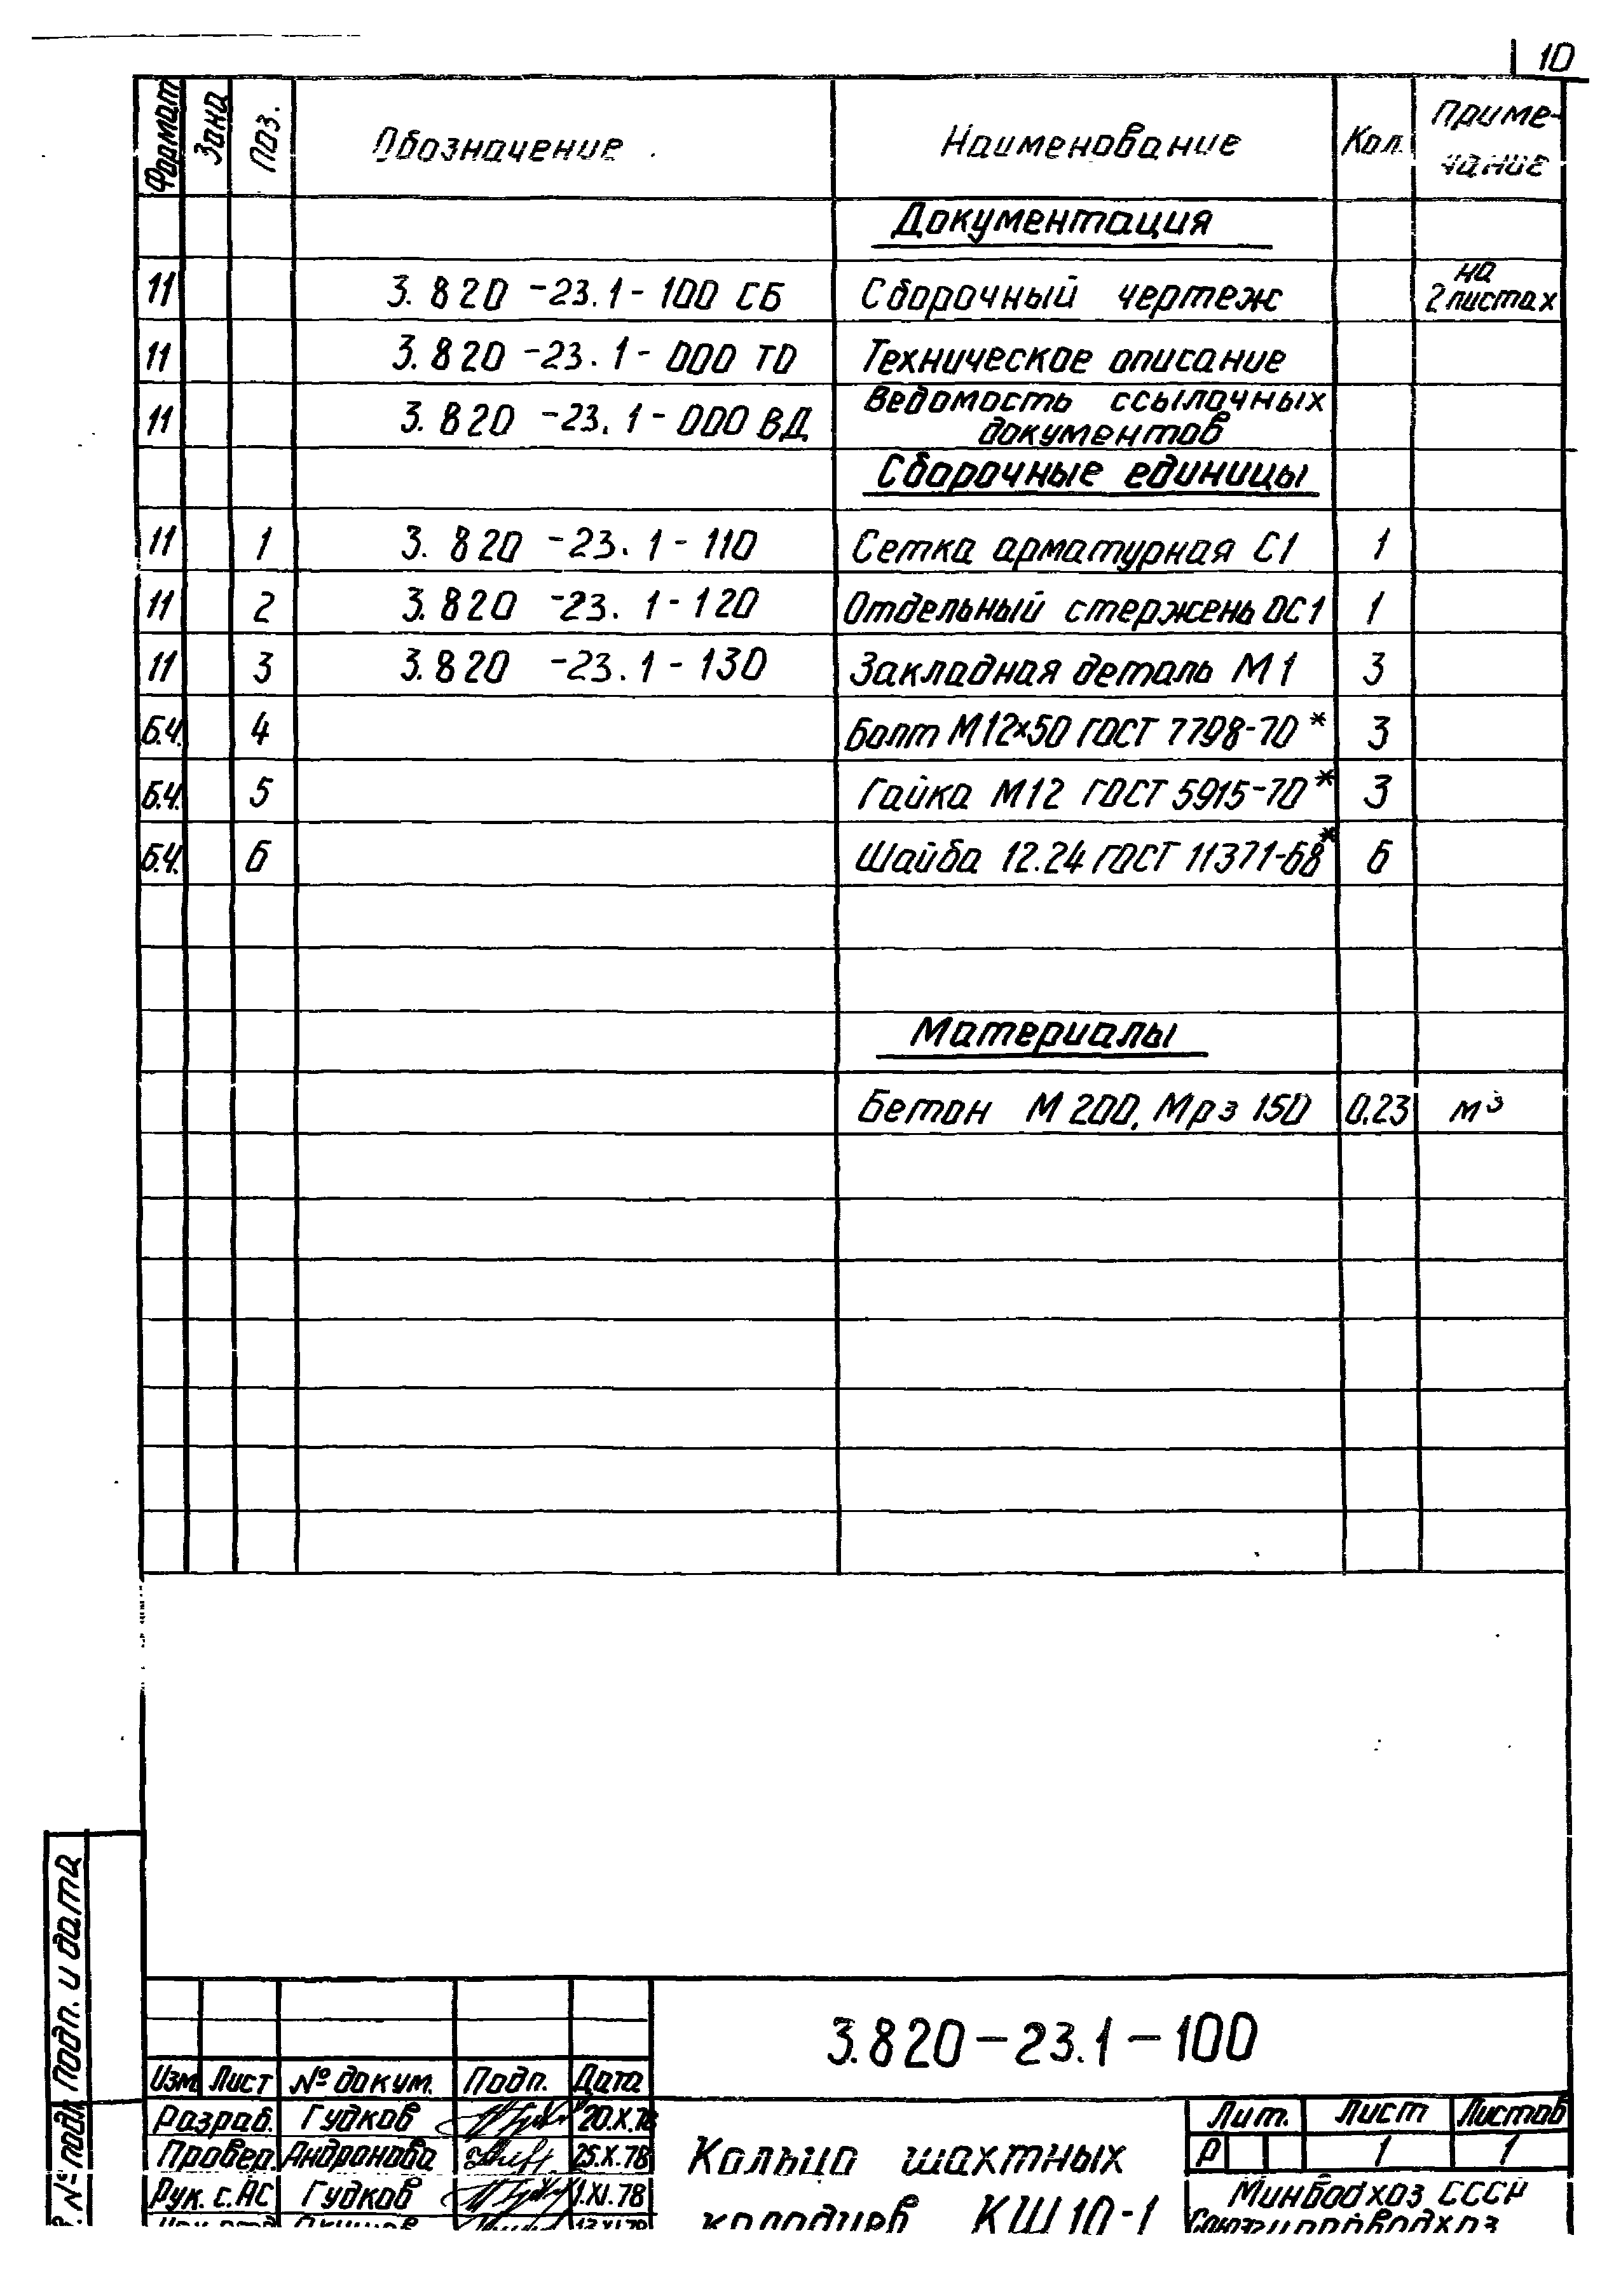 10
Формат Зона Поз. Обозначение Наименование Кол. Приме-
чание
Документация
11 3.820-23.1-100 СБ Сборочный чертеж на
2 листах
11 3.820-23.1-000 ТО Техническое описание
11 3.820-23.1-000 ВД Ведомость ссылочных
документов
Сборочные единицы
11 1 3.820-23.1-110 Сетка арматурная С1 1
11 2 3.820-23.1-120 Отдельный стержень ОС1 1
11 3 3.820-23.1-130 Закладная деталь М1 3
Б.Ч. 4 Болт М12×50 ГОСТ 7798-70* 3
Б.Ч. 5 Гайка М12 ГОСТ 5915-70* 3
Б.Ч. 6 Шайба 12.24 ГОСТ 11371-68* 6
Материалы
Бетон М 200, Мрз 150 0.23 м³
Подп. и дата
№ подл.
3.820-23.1-100
Изм. Лист № докум. Подп. Дата
Разраб. Гудков 20.X.78
Провер. Андронова 25.X.78
Рук. с. АС Гудков 1.XI.78
Кольцо шахтных
колодцев КШ10-1
Лит. Лист Листов
Р 1 1
Минводхоз СССР
Союзгипроводхоз